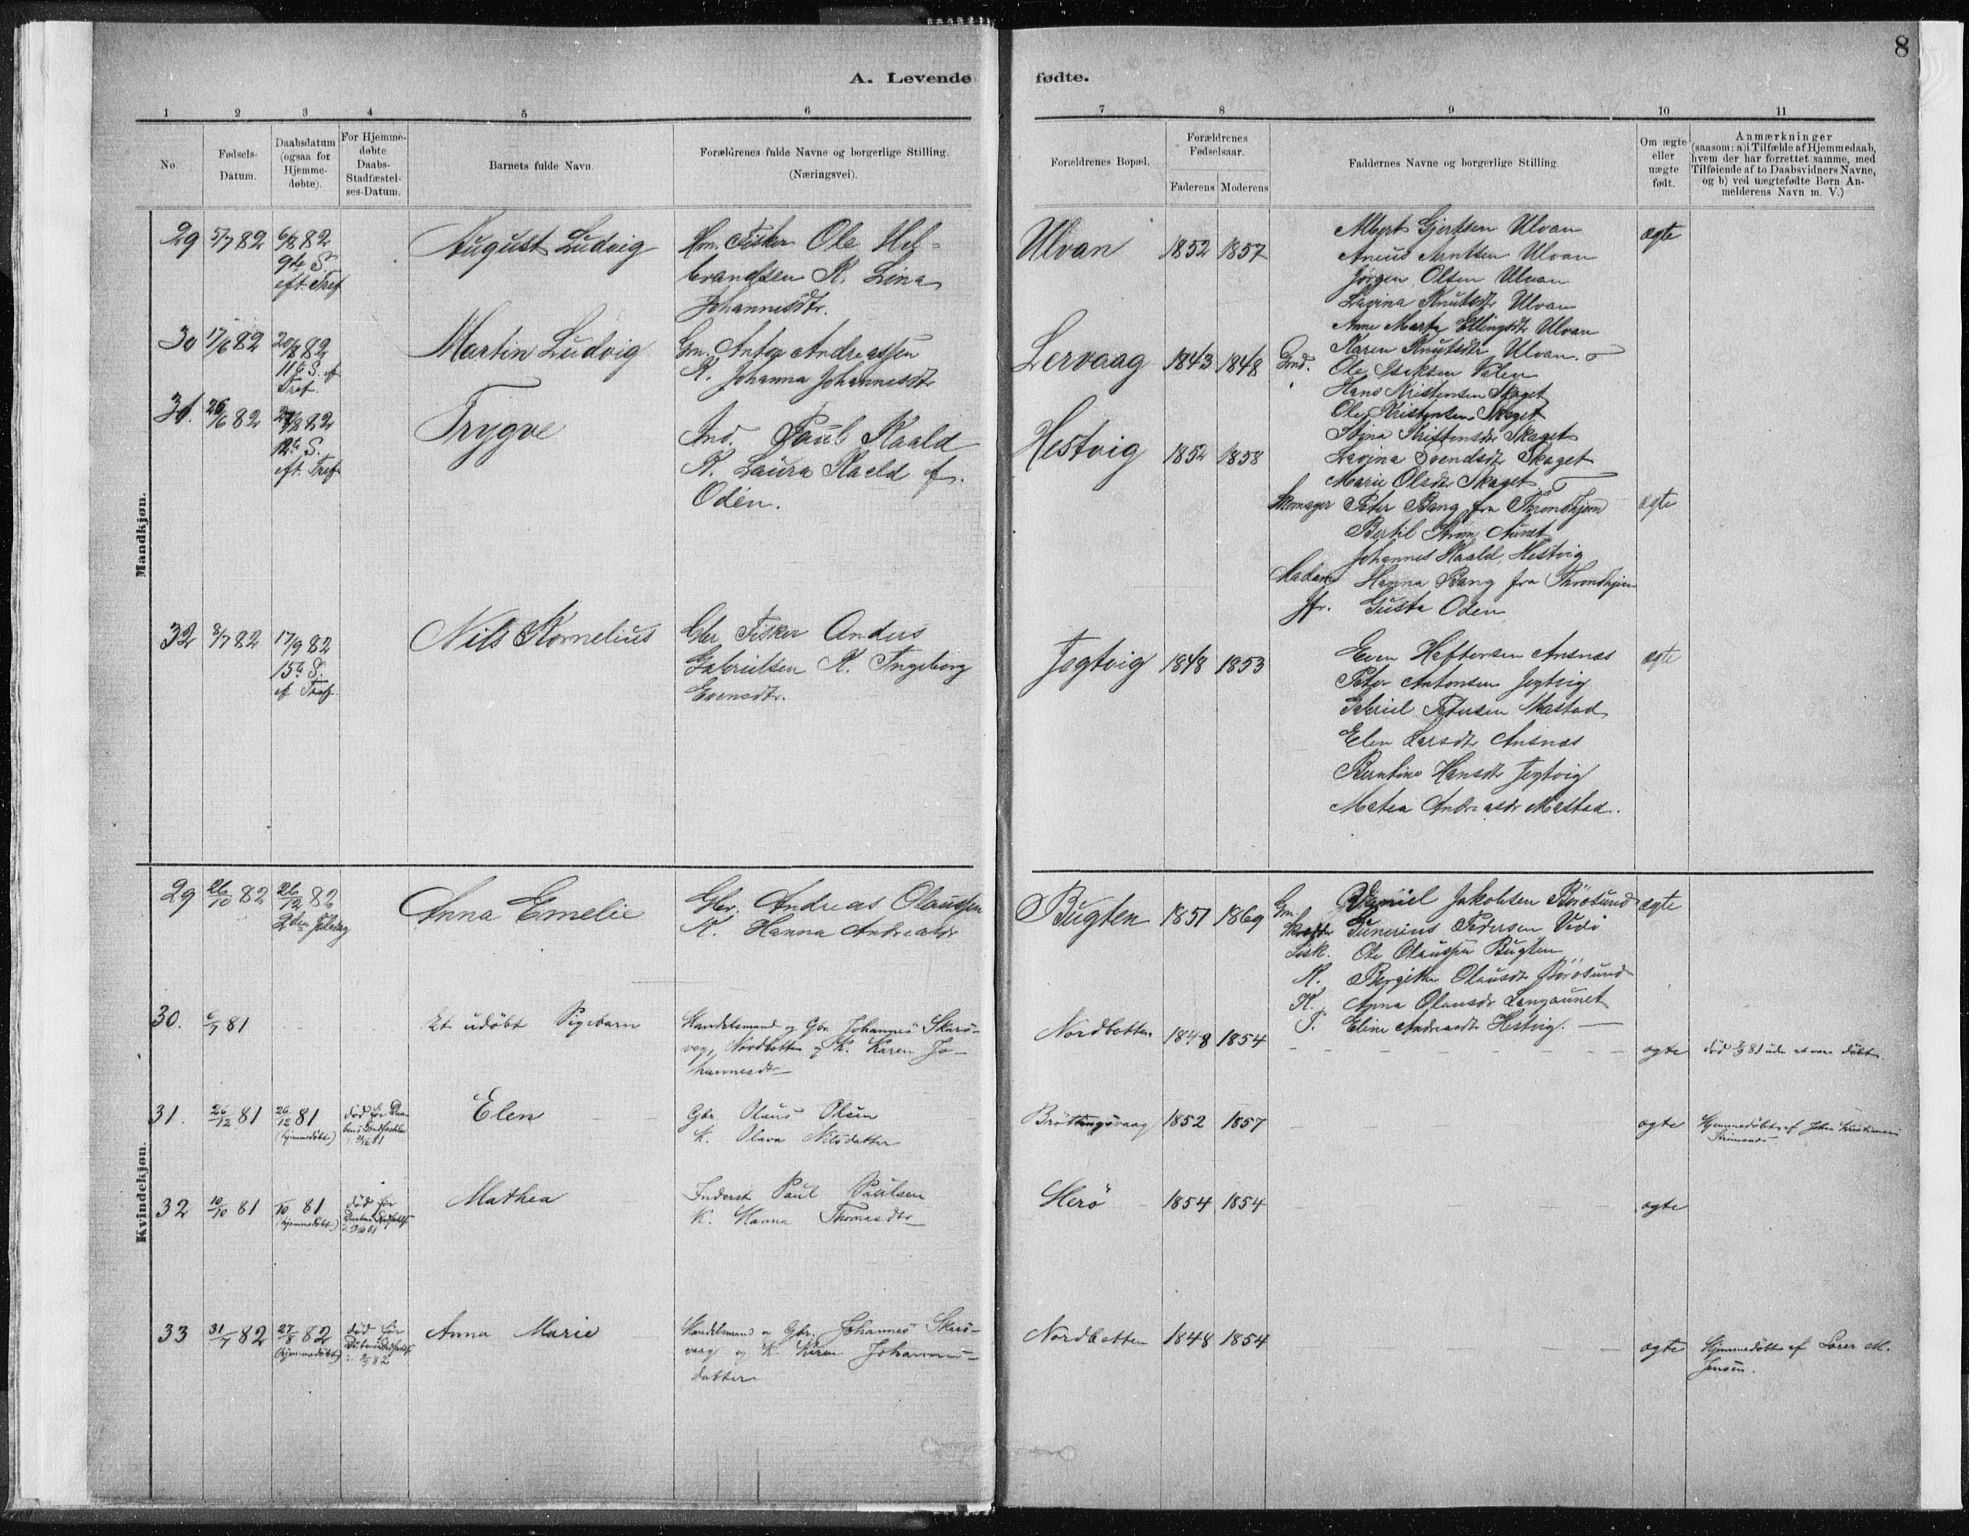 8
A. Levende
fødte.
1 2 3 4 5 6
7 8 9 10 11
No.
Fødsels-
Datum.
Daabsdatum
(ogsaa for
Hjemme-
døbte).
For Hjemme-
døbte
Daabs-
Stadfæstel-
ses-Datum.
Barnets fulde Navn.
Forældrenes fulde Navne og borgerlige Stilling.
(Næringsvei).
Forældrenes Bopæl.
Forældrenes
Fødselsaar.
Faderens Moderens
Faddernes Navne og borgerlige Stilling.
Om ægte
eller
uægte
født.
Anmærkninger
(saasom: a) i Tilfælde af Hjemmedaab,
hvem der har forrettet samme, med
Tilføiende af to Daabsvidners Navne,
og b) ved uægtefødte Børn An-
melderens Navn m. V.)
Mandkjøn.
29 5/7 82
6/8 82
9de S
eft. Tref
August Ludvig
Hm. Fisker Ole Hel-
brandtsen K. Lina
Johannesdtr.
Ulvan
1852 1857
Albert Gjertsen Ulvan
Aneus Arntsen Ulvan
Jørgen Olsen Ulvan
Lavina Knutsdtr Ulvan
Anne Marta Ellingsdtr Ulvan
Karen Knutsdtr Ulvan.
ægte
30 17/6 82
20/8 82
11te S. ef
Tref.
Martin Ludvig
Gm. Anton Andreassen
K. Johanna Johannesdtr
Lervaag
1843 1848
Gmd. Ole Isaksen Valen
Hans Kristensen Skaget
Ole Kristensen Skaget
Stina Kristensdtr Skaget
Lavina Svendsdtr Skaget
Marie Olsdtr Skaget
31. 26/6 82
27/8 82
12te S.
eft. Tref
Trygve
Ind. Paul Kaald
K. Laura Kaald f.
Oden.
Hestvig
1852 1858
Skomager Peter Bang fra Throndhjem
Bertil Strøm Aunet
Johannes Kaald, Hestvig
Madam Hanna Bang fra Throndhjem
Jfr. Gusta Oden
ægte
32 8/7 82
17/9 82
15de S.
ef Tref.
Nils Kornelius
Gbr Fisker Anders
Gabrielsen K. Ingeborg
Evensdtr.
Jegtvig
1848 1853
Even Heftersen Ansnæs
Peter Antonsen Jegtvig
Gabriel Petersen Mastad
Elen Larsdtr Ansnæs
Berntine Hansdtr Jegtvig
Matea Andreasdr Mastad.
ægte
Kvindekjøn.
29 26/10 82
26/12 82
2den Juledag
Anna Emelie
Gbr. Andreas Olaussen
K. Hanna Andreasdr
Bugten
1851 1860
Gm. Daniel Jakobsen Børøsund
Tenerius Pedersen Vedø
Fisk. Ole Olaussen Bugten
K. Bergithe Olausdtr Børøsund
K. Anna Olausdr Langaunet
P. Eline Andreasdt Hestvig.
ægte
30. 81
Et udøbt Pigebarn
Handelsmand og Gbr. Johannes Skarsvaag, Nordbotten og K. Karen Jo-
hannesdtr
Nordbotten
1848 1854
ægte
død 81 uden at være døbt
31. 26/12 81
26/12 81
(hjemmedøbt)
død før
Elen
Gbr Olaus Olsen
K. Olava Nilsdatter
Brøttingsvaag
1852 1857
ægte
Hjemmedøbt af Johan Kristiansen
32 10/10 81
81
(hjemmedøbt)
død før
Mathea
Inderst Paul Paulsen
K. Hanna Thomasdtr
Herø
1854 1854
ægte
33 31/7 82
27/8 82
(hjemmedøbt)
død før
Anna Marie
Handelsmand og Gbr. Johannes Skars-
vaag og K. Karen Johannes-
datter
Nordbotten
1848 1854
ægte
Hjemmedøbt af Sører M.
Jensen.